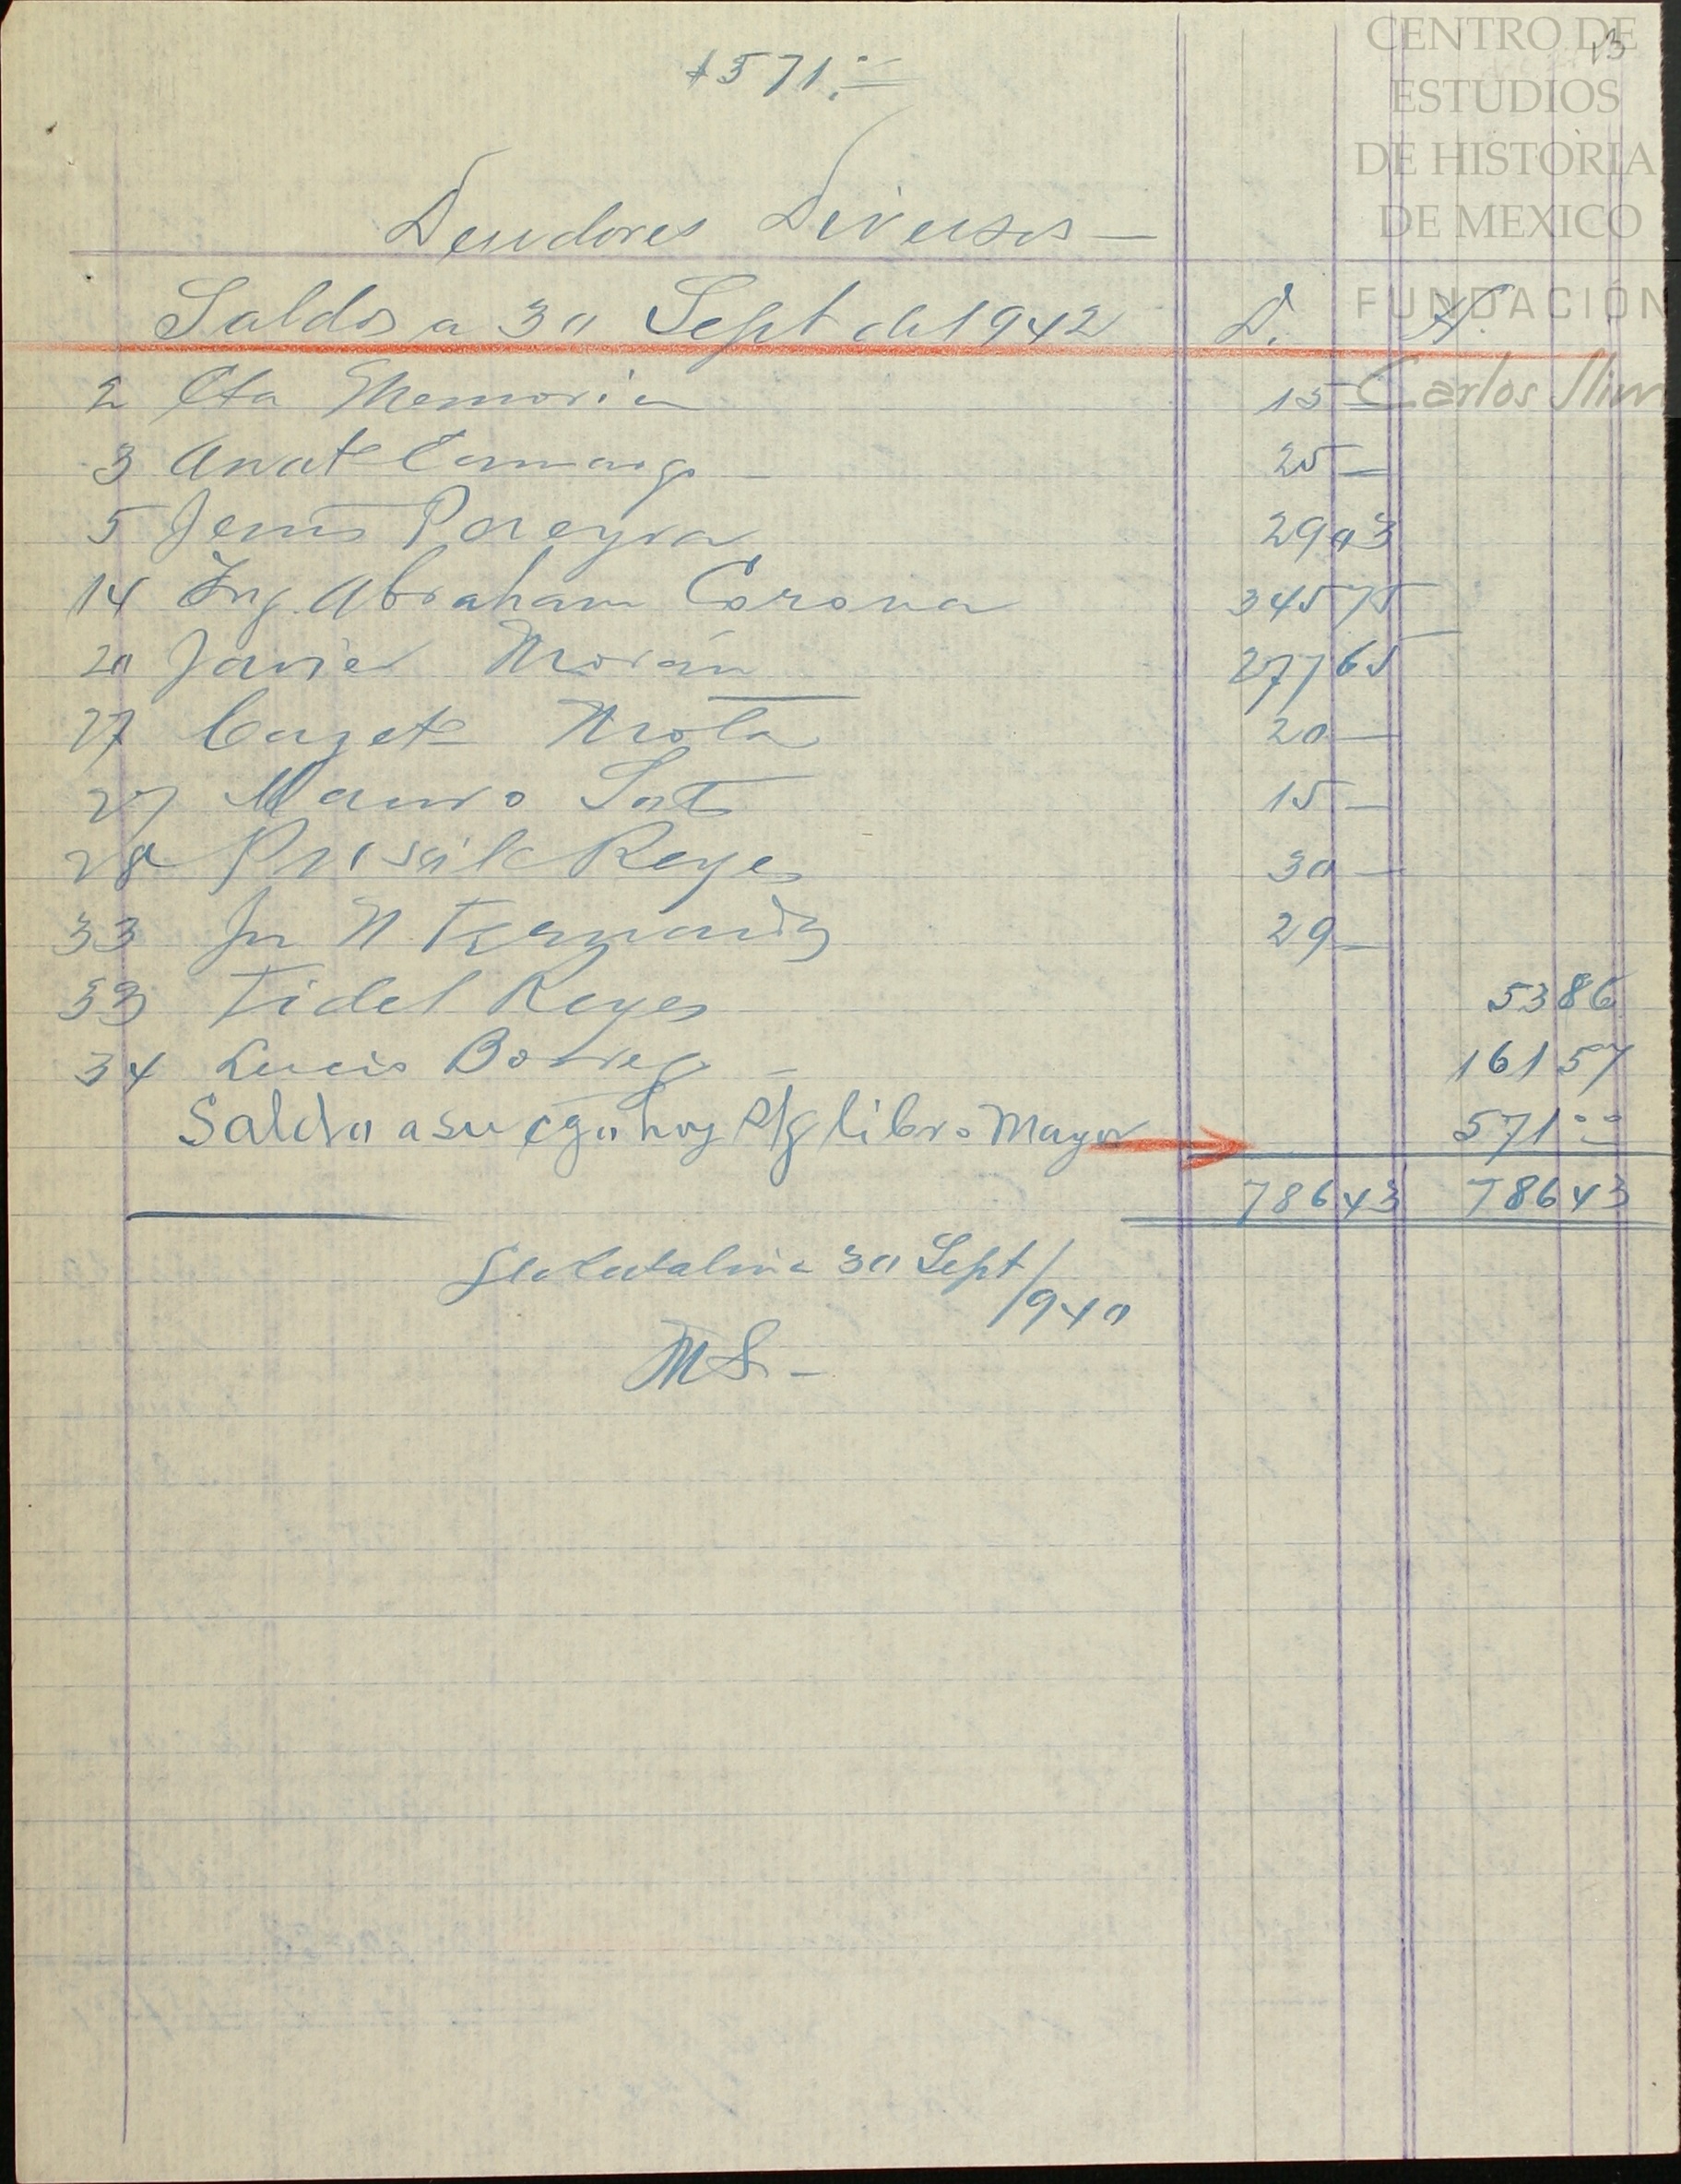 CENTRO DE
ESTUDIOS
DE HISTORIA
DE MEXICO
FUNDACIÓN
Carlos Slim
13
$571.00
Deudores Diversos —
Saldos a 30 Sept de 1942 D. H.
2 Cta Memoria 15 —
3 Camargo — 25 —
5 Jesus Pereyra 29 03
14 Ing. Abraham Corona 345 75
20 Javier Morán 277 65
27 Mota 20 —
27 Mauro Soto 15 —
28 Reyes 30 —
33 Jn N Fernandz 29 —
33 Fidel Reyes 53 86
34 Lucio Borrego — 161 57
Saldo a su cgo hoy s/g libro Mayor 571 00
786 43 786 43
30 Sept/
940
MS. —